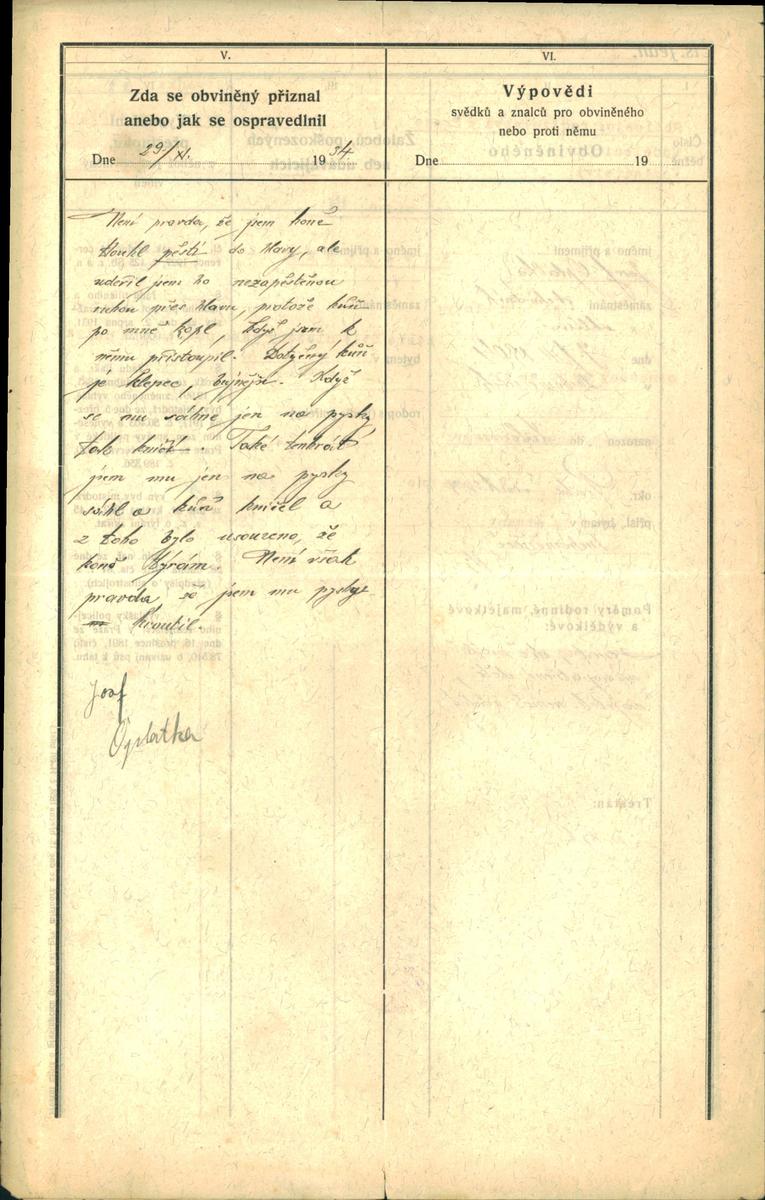 V.
Zda se obviněný přiznal
anebo jak se ospravedlnil
Dne 29./XI. 1934.
Není pravda, že jsem koně
tloukl pěstí do hlavy, ale
udeřil jsem ho
rukou přes hlavu, protože kůň
po mně kopl, když jsem k
němu přistoupil. Dotyčný kůň
je klepec, bujnější. Když
se mu sáhne jen na pysky
tak kničí. Také tenkrát
jsem mu jen na pysky
sáhl a kůň kničel a
z toho bylo usouzeno, že
koně týrám. Není však
pravda, že jsem mu pysky
kroutil.
Josef
Oplatka
VI.
Výpovědi
svědků a znalců pro obviněného
nebo proti němu
Dne 19